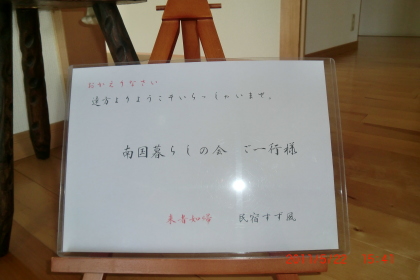 おかえりなさい
遠方よりようこそいらっしゃいませ。
南国暮らしの会 ご一行様
来者如帰 民宿すず風